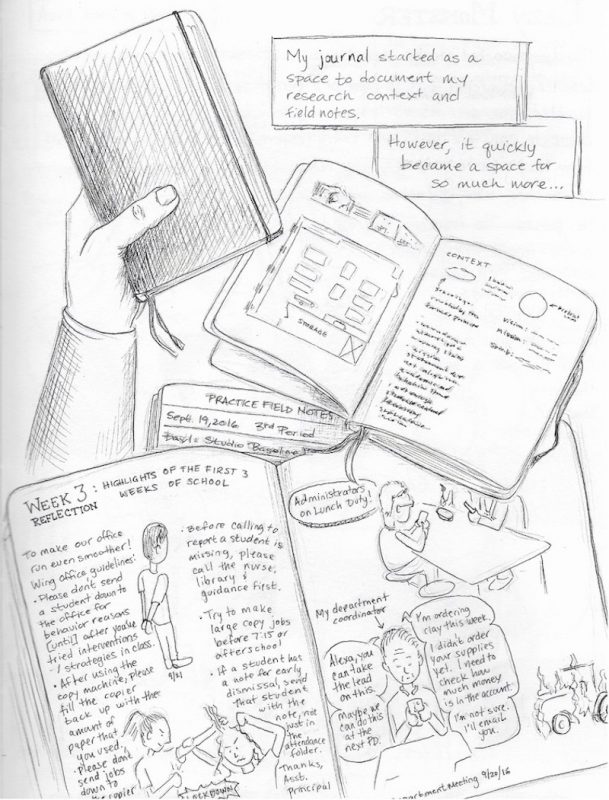 My journal started as a
space to document my
research context and
field notes.
However, it quickly
became a space for
so much more...
STORAGE
CONTEXT
Vision:
Mission:
PRACTICE FIELD NOTES
Sept. 19, 2016 3rd Period
WEEK 3: HIGHLIGHTS OF THE FIRST 3
WEEKS OF SCHOOL
REFLECTION
To make our office
run even smoother!
Wing office guidelines:
• Please don't send
a student down to
the office for
behavior reasons
[until] after you've
tried interventions
/ strategies in class.
• After using the
copy machine, please
fill the copier
back up with the
amount of
paper that
you used.
• Please don't
send jobs
down to
the copier
9/21
• Before calling to
report a student is
missing, please
call the nurse,
library &
guidance first.
• Try to make
large copy jobs
before 7:15 or
afterschool
• If a student has
a note for early
dismissal, send
that student
with the
note, not
just in
the
attendance
folder.
Thanks,
Asst.
Principal
LOCKDOWN
Administrators
on Lunch Duty!
My department
coordinator
Alexa, you
can take
the lead
on this.
Maybe we
can do this
at the
next PD.
I'm ordering
clay this week.
I didn't order
your supplies
yet. I need to
check how
much money
is in the account.
I'm not sure.
I'll email
you.
Department Meeting 9/20/16